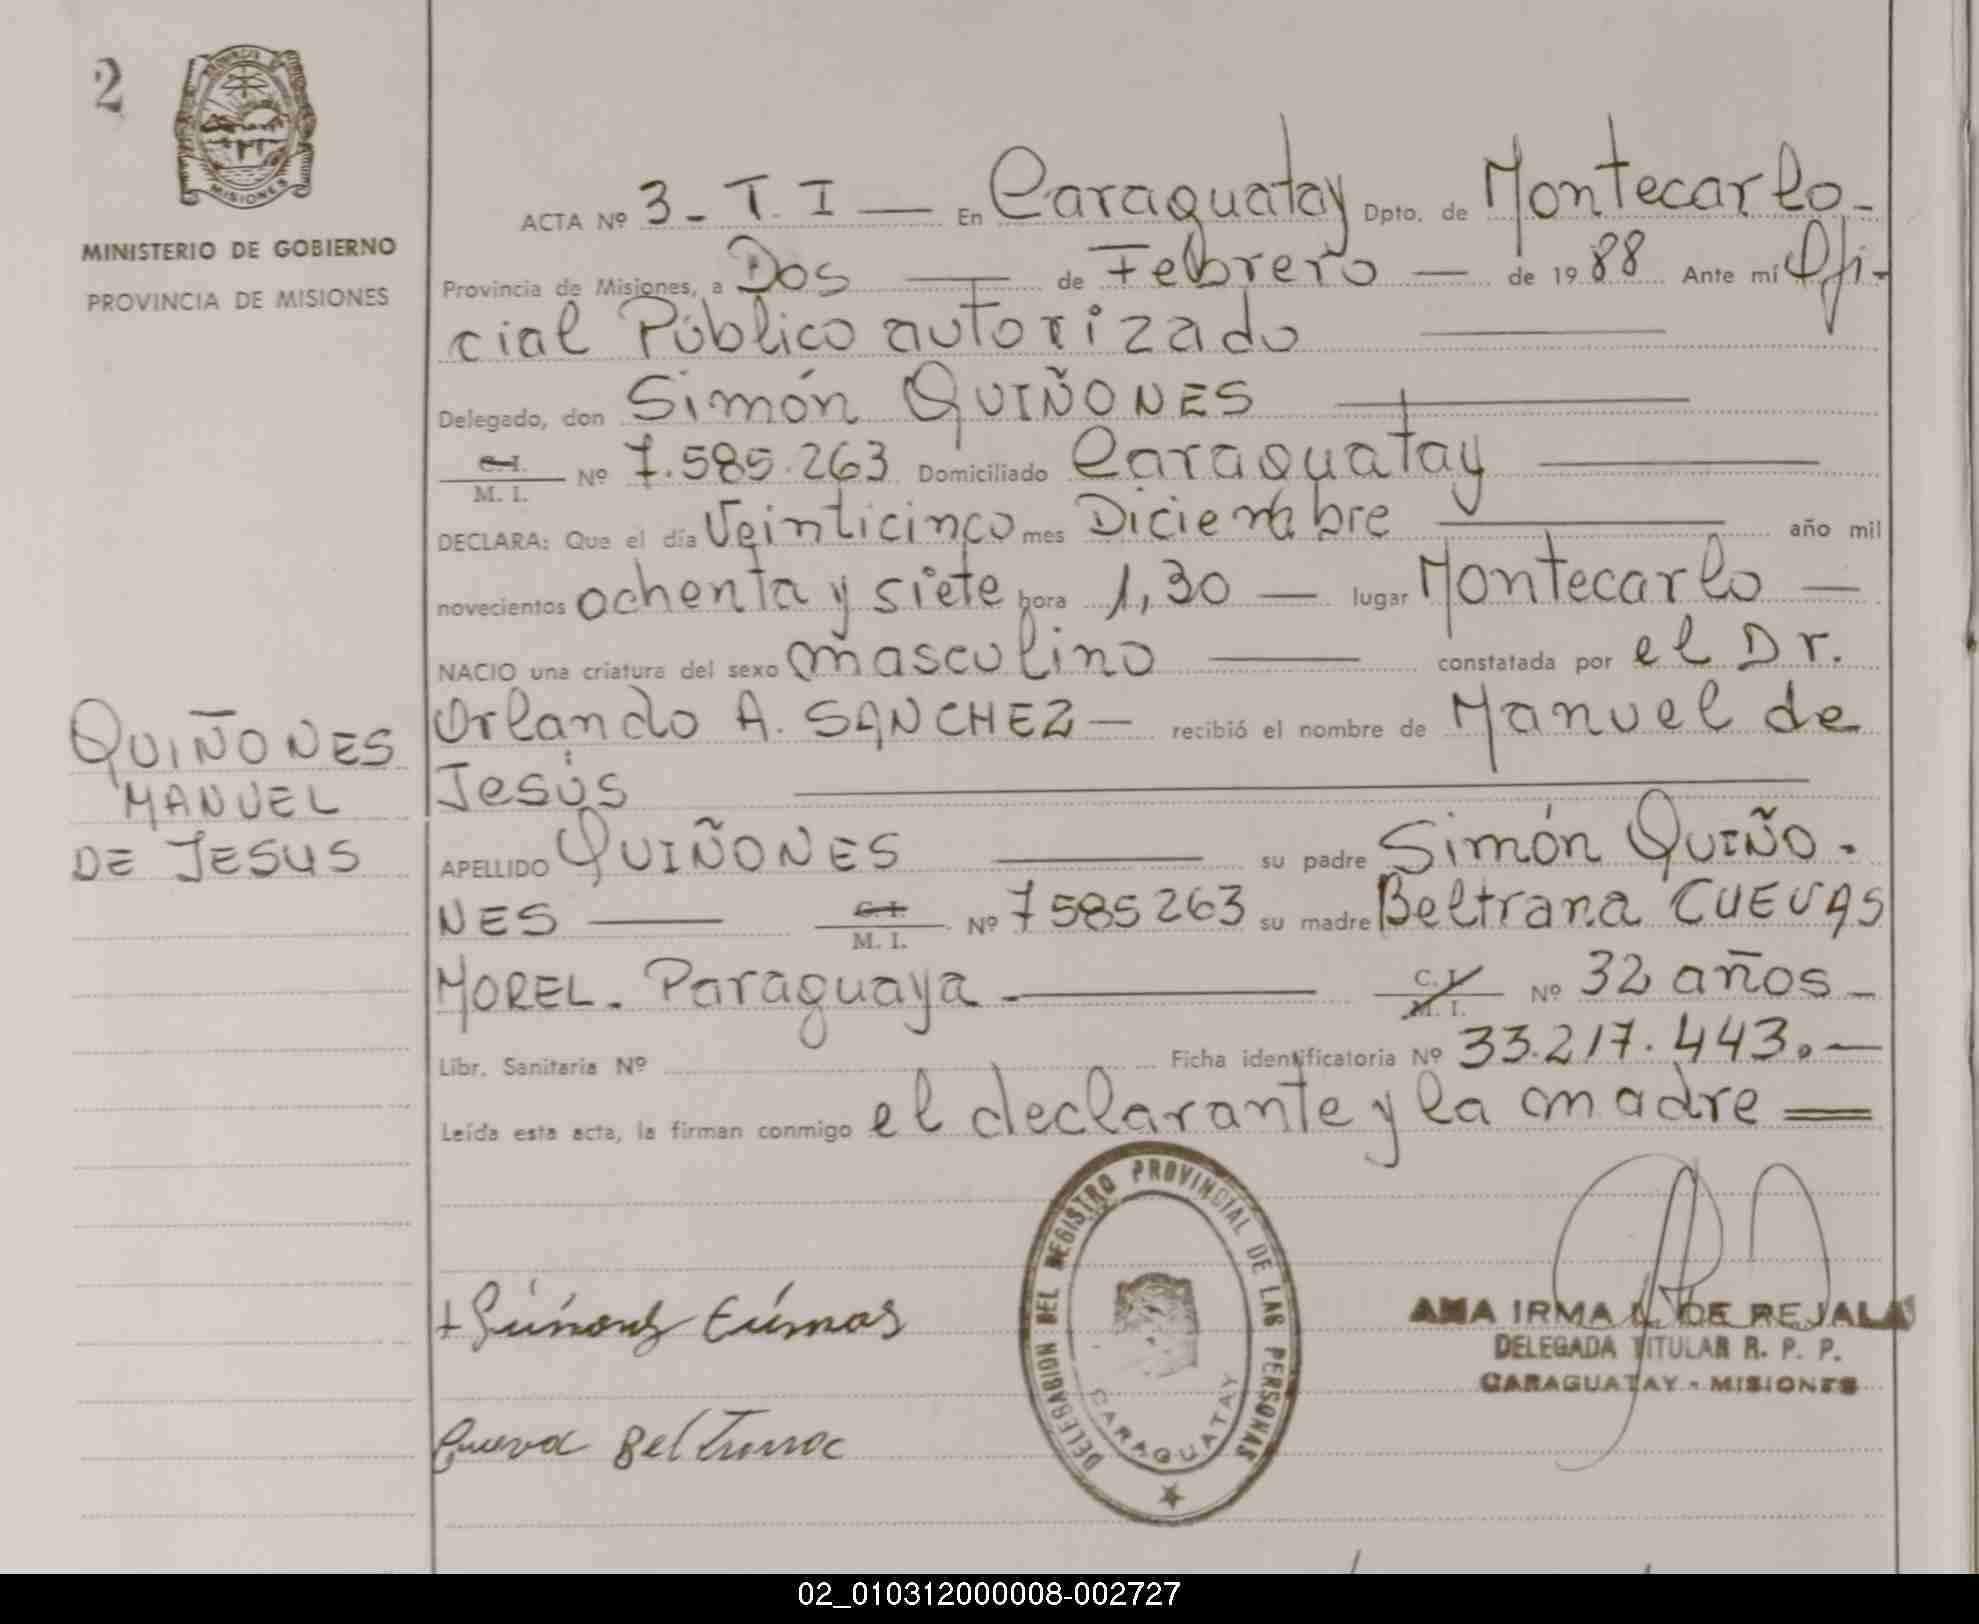 2
PROVINCIA DE
MISIONES
MINISTERIO DE GOBIERNO
PROVINCIA DE MISIONES
ACTA Nº 3 - T. I — En Caraguatay Dpto. de Montecarlo -
Provincia de Misiones, a Dos — de Febrero — de 19 88 Ante mí Ofi-
cial Público autorizado —
Delegado, don Simón QUIÑONES —
C. I. / M. I. Nº 7.585.263 Domiciliado Caraguatay —
DECLARA: Que el día Veinticinco mes Diciembre — año mil
novecientos ochenta y siete hora 1,30 — lugar Montecarlo —
NACIO una criatura del sexo masculino — constatada por el Dr.
Orlando A. SANCHEZ — recibió el nombre de Manuel de
Jesús —
QUIÑONES
MANUEL
DE JESUS
APELLIDO QUIÑONES — su padre Simón QUIÑO -
NES — C. I. / M. I. Nº 7585263 su madre Beltrana CUEVAS
MOREL - Paraguaya — C. I. / M. I. Nº 32 años -
Libr. Sanitaria Nº Ficha identificatoria Nº 33.217.443. —
Leída esta acta, la firman conmigo el declarante y la madre =
DELEGACION DEL REGISTRO PROVINCIAL DE LAS PERSONAS
CARAGUATAY
ANA IRMA L. DE REJALA
DELEGADA TITULAR R. P. P.
CARAGUATAY - MISIONES
02_010312000008-002727